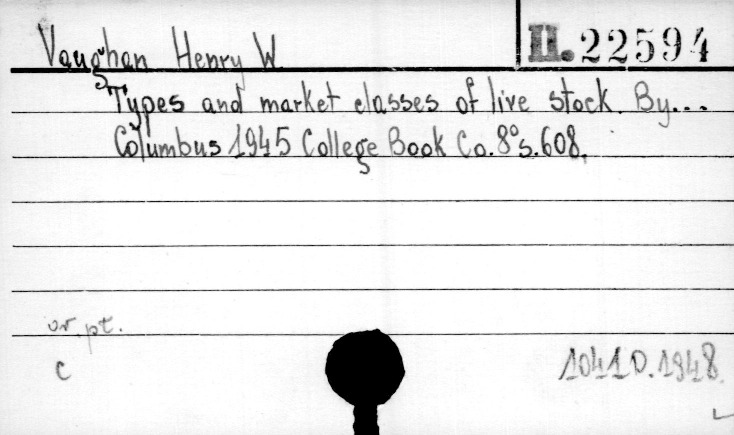 Vaughan Henry W.
II. 22594
Types and market classes of live stock. By...
Columbus 1945 College Book Co. 8° s. 608.
or. pt.
c
1041 D. 1948.